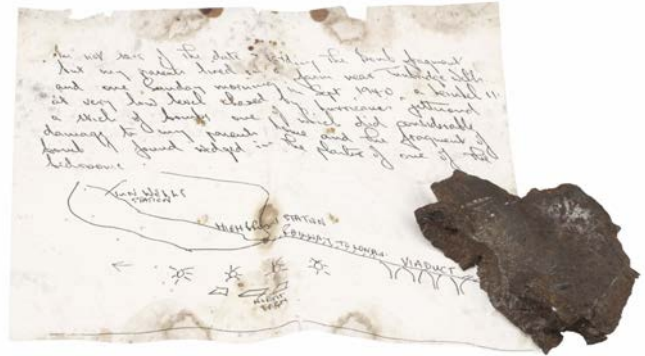 not sure of the date the bomb fragment
but my parents lived in a farm near
and one Sunday morning in Sept 1940 a Heinkel 111
at very low level chased by hurricanes jettisoned
a stick of bombs one of which did considerable
damage to my parents home and the fragment of
bomb I found wedged in the plaster of one of the
bedrooms
TUN WELLS
STATION
STATION
RAILWAY TO LONDON
VIADUCT